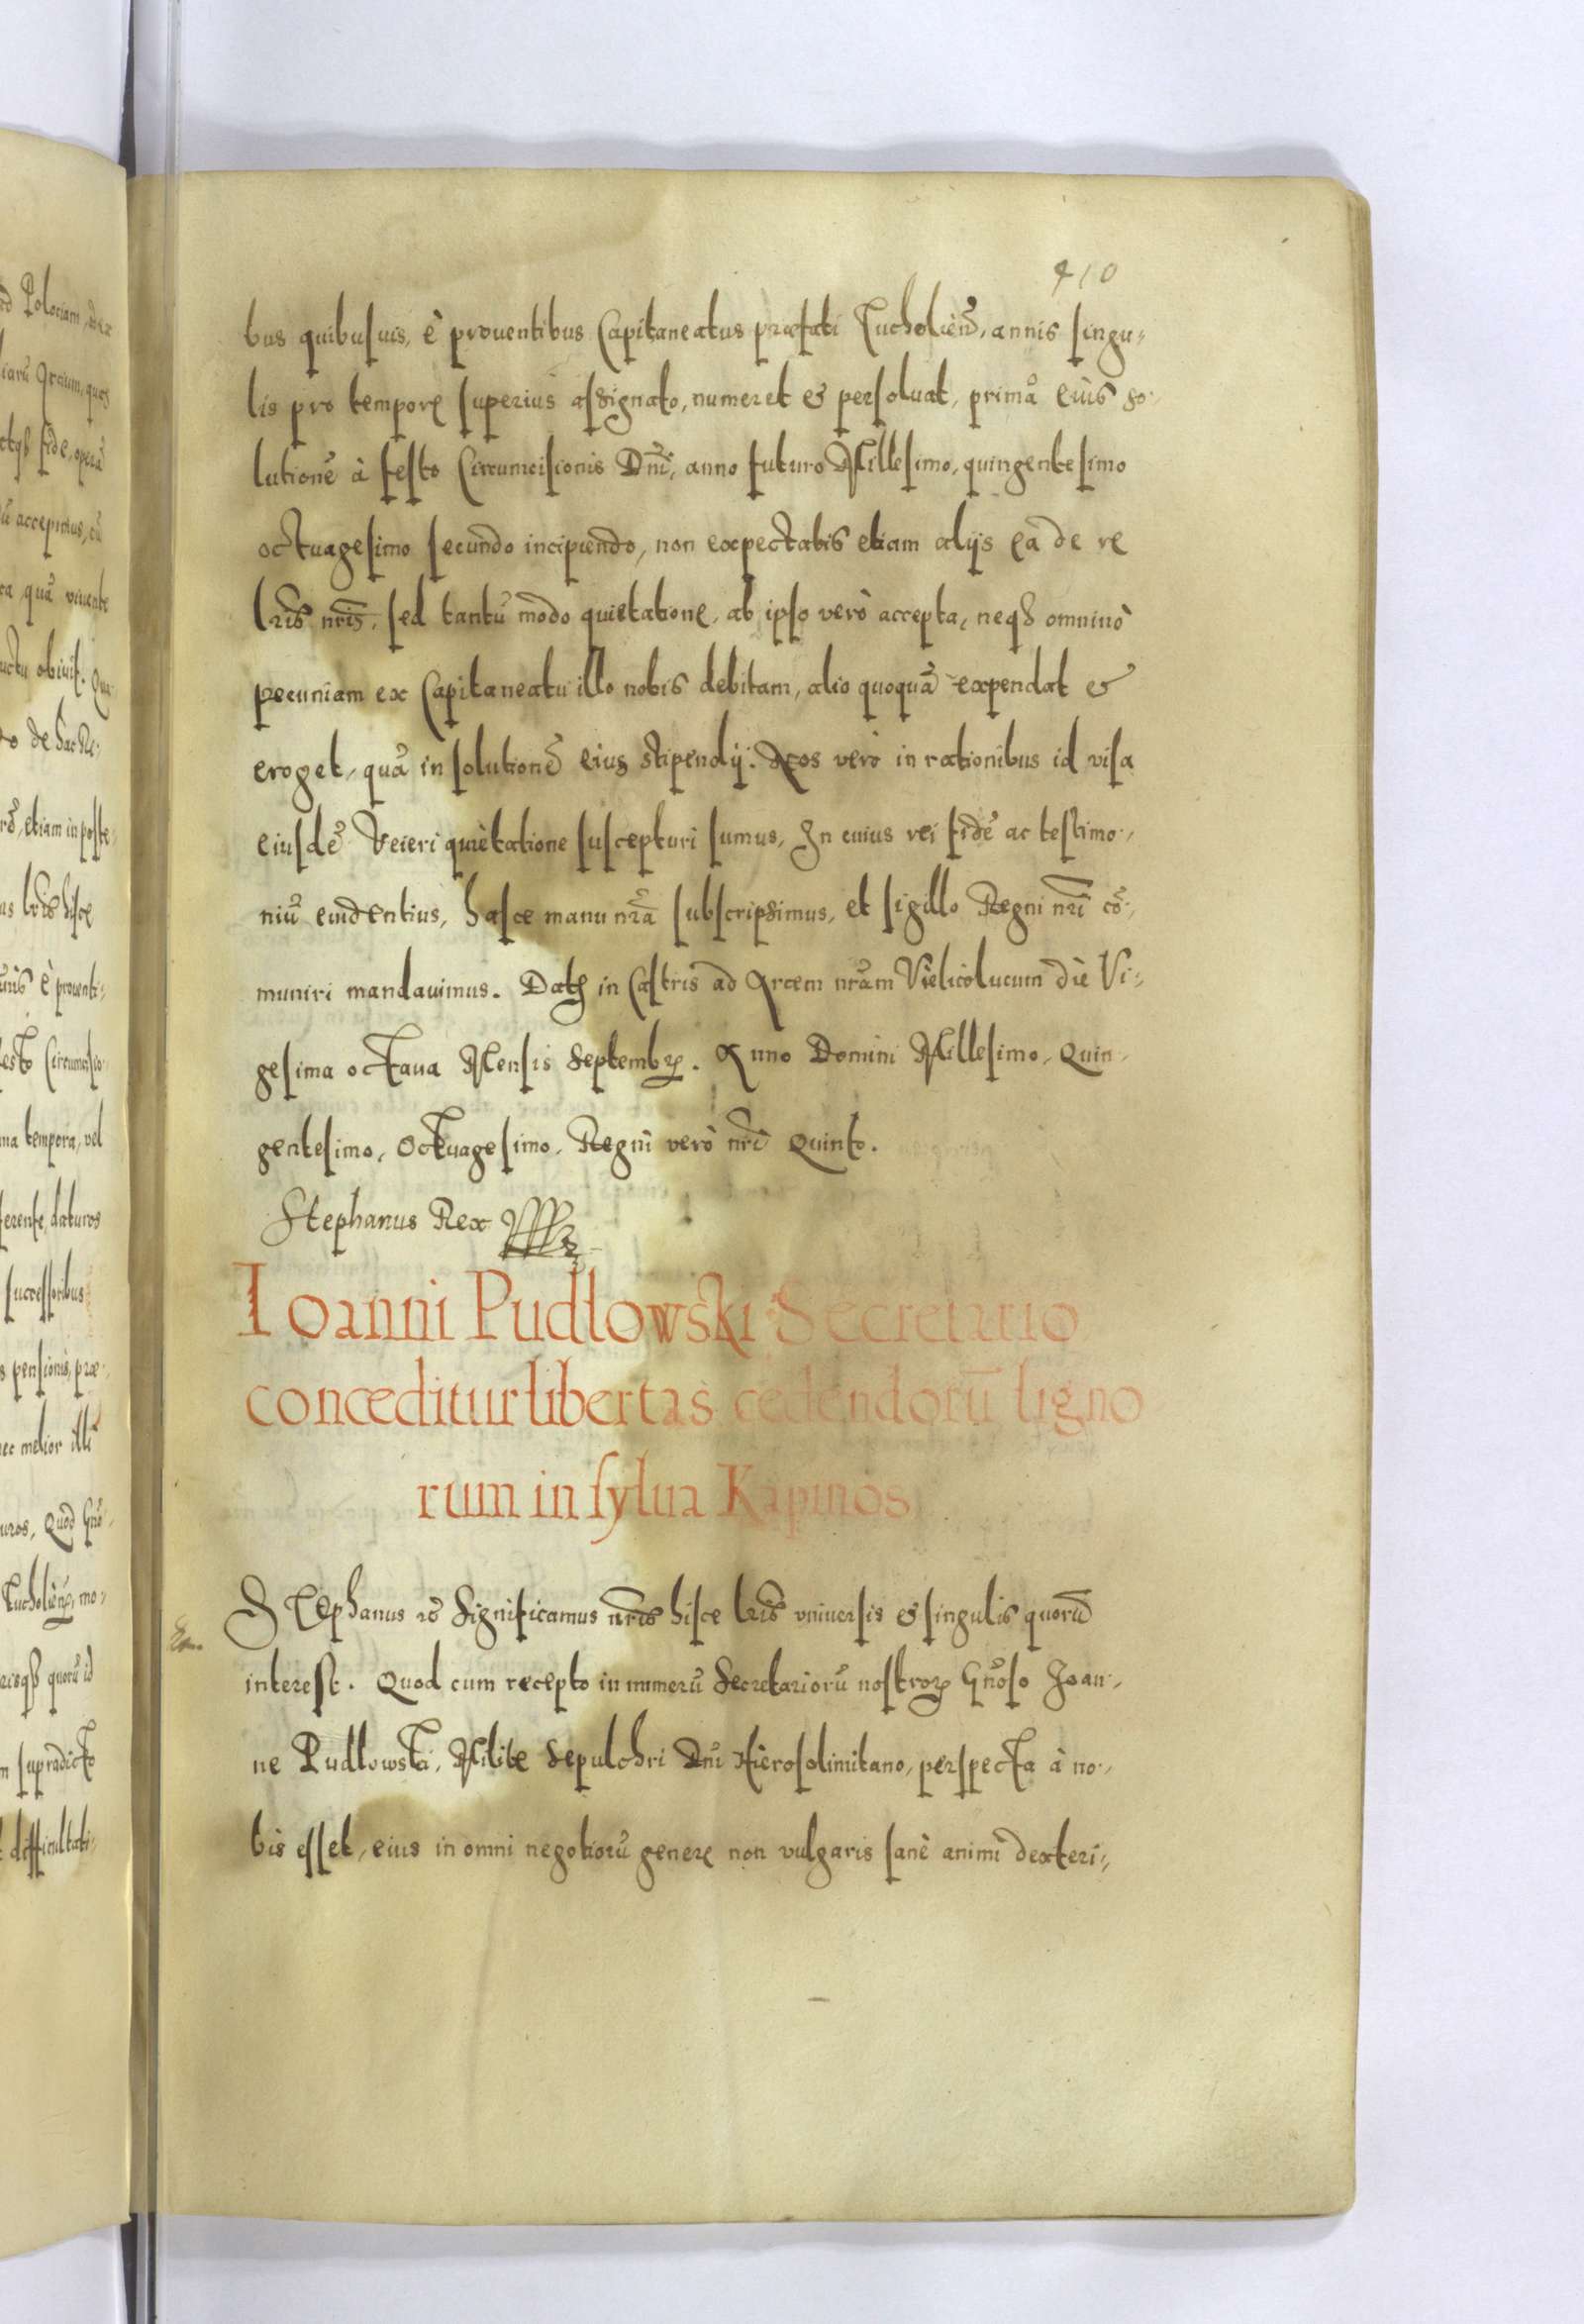 410
bus quibusuis, è prouentibus Capitaneatus præfati Tucholien̄, annis singu=
lis pro tempore superius assignato, numeret & persoluat, primā eius so=
lutionē à festo Circumcisionis Dnī, anno futuro Millesimo, quingentesimo
octuagesimo secundo incipiendo, non expectatis etiam alijs ea de re
lrīs nrīs, sed tantū modo quietatione, ab ipso verò accepta, neqȝ omninò
pecuniam ex Capitaneatu illo nobis debitam, alio quoquā expendat &
eroget, quā in solutionē eius stipendij. Nos verò in rationibus id visa
eiusdē Veieri quietatione suscepturi sumus, In cuius rei fidē ac testimo=
niū euidentius, hasce manu nr̄a subscripsimus, et sigillo Regni nrī cō=
muniri mandauimus. Datȝ in Castris ad Arcem nrām Vielicolucum die Vi=
gesima octaua Mensis Septembrȝ. Anno Domini Millesimo, Quin=
gentesimo, Octuagesimo, Regni verò nrī Quinto.
Stephanus Rex
Ioanni Pudlowski Secretario
conceditur libertas cedendorū ligno
rum in sylua Kapinos
STephanus rē Significamus nrīs hisce lrīs vniuersis & singulis quorū
interest. Quod cum recepto in numerū Secretariorū nostrorȝ Gnōso Ioan=
ne Pudlowski, Milite Sepulchri Dnī Hierosolimitano, perspecta à no=
bis esset, eius in omni negotiorū genere non vulgaris sanè animi dexteri=